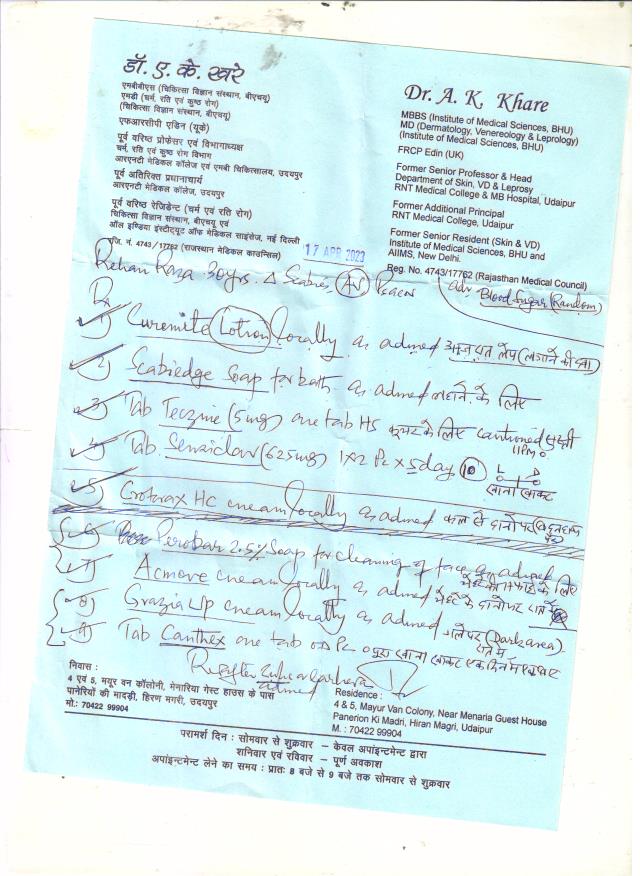 डॉ. ए. के. खरे
एमबीबीएस (चिकित्सा विज्ञान संस्थान, बीएचयू)
एमडी (चर्म, रति एवं कुष्ठ रोग)
(चिकित्सा विज्ञान संस्थान, बीएचयू)
एफआरसीपी एडिन (यूके)
पूर्व वरिष्ठ प्रोफेसर एवं विभागाध्यक्ष
चर्म, रति एवं कुष्ठ रोग विभाग
आरएनटी मेडिकल कॉलेज एवं एमबी चिकित्सालय, उदयपुर
पूर्व अतिरिक्त प्रधानाचार्य
आरएनटी मेडिकल कॉलेज, उदयपुर
पूर्व वरिष्ठ रेजिडेन्ट (चर्म एवं रति रोग)
चिकित्सा विज्ञान संस्थान, बीएचयू एवं
ऑल इण्डिया इंस्टीट्यूट ऑफ मेडिकल साइंसेज, नई दिल्ली
रजि. नं. 4743/17762 (राजस्थान मेडिकल काउन्सिल)
Dr. A. K. Khare
MBBS (Institute of Medical Sciences, BHU)
MD (Dermatology, Venereology & Leprology)
(Institute of Medical Sciences, BHU)
FRCP Edin (UK)
Former Senior Professor & Head
Department of Skin, VD & Leprosy
RNT Medical College & MB Hospital, Udaipur
Former Additional Principal
RNT Medical College, Udaipur
Former Senior Resident (Skin & VD)
Institute of Medical Sciences, BHU and
AIIMS, New Delhi.
Reg. No. 4743/17762 (Rajasthan Medical Council)
17 APR 2023
Rehan Raza 30yrs. Δ Scabies, AV
adv Blood Sugar (Random)
Rx
1) Lotion locally as advised आज रात लेप (लगाने की दवा)
2) Scabiedge Soap for bath as advised नहाने के लिए
3) Tab Teczine (5mg) one tab HS के लिए cautioned
4) Tab (625mg) 1x2 Pc x 5day 10
5) HC cream locally as advised कल से दानों पर
6) Perobar 2.5% Soap for cleaning of face as advised के लिए
7) Acmove cream locally as advised चेहरे के दानों पर रात में
8) cream locally as advised (Dark area) रात में
9) Tab Canthex one tab OD Pc खाना खाकर एक दिन में एक बार
advised
निवास :
4 एवं 5, मयूर वन कॉलोनी, मेनारिया गेस्ट हाउस के पास
पानेरियों की मादड़ी, हिरण मगरी, उदयपुर
मो.: 70422 99904
Residence :
4 & 5, Mayur Van Colony, Near Menaria Guest House
Panerion Ki Madri, Hiran Magri, Udaipur
M. : 70422 99904
परामर्श दिन : सोमवार से शुक्रवार – केवल अपांइन्टमेन्ट द्वारा
शनिवार एवं रविवार – पूर्ण अवकाश
अपांइन्टमेन्ट लेने का समय : प्रातः 8 बजे से 9 बजे तक सोमवार से शुक्रवार